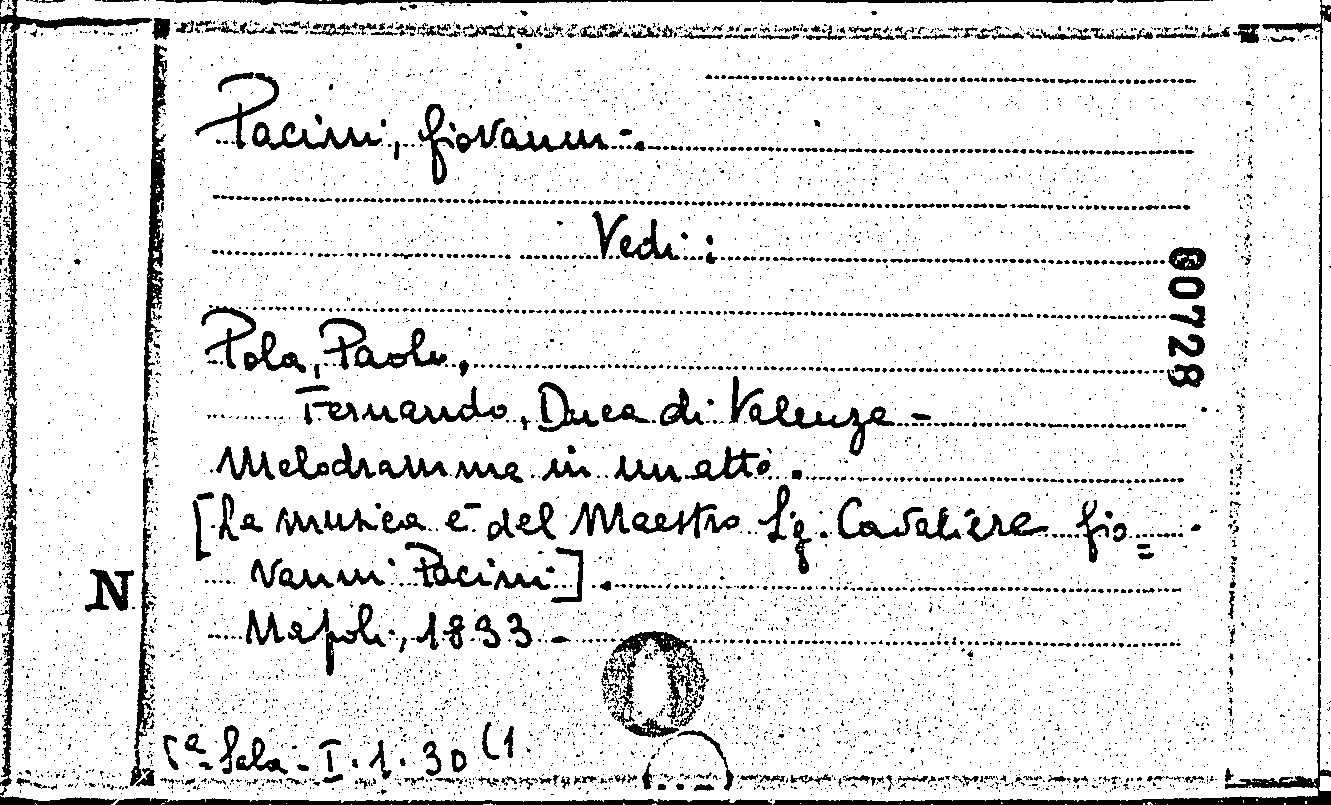 Pacini, Giovanni -.
Vedi:
00728
Pola, Paolo,
Fernando, Duca di Valenza -
Melodramma in un atto.
[La musica è del Maestro Sig. Cavaliere Gio=
vanni Pacini].
N
Napoli, 1833 -
Sala - I. 1. 30 (1